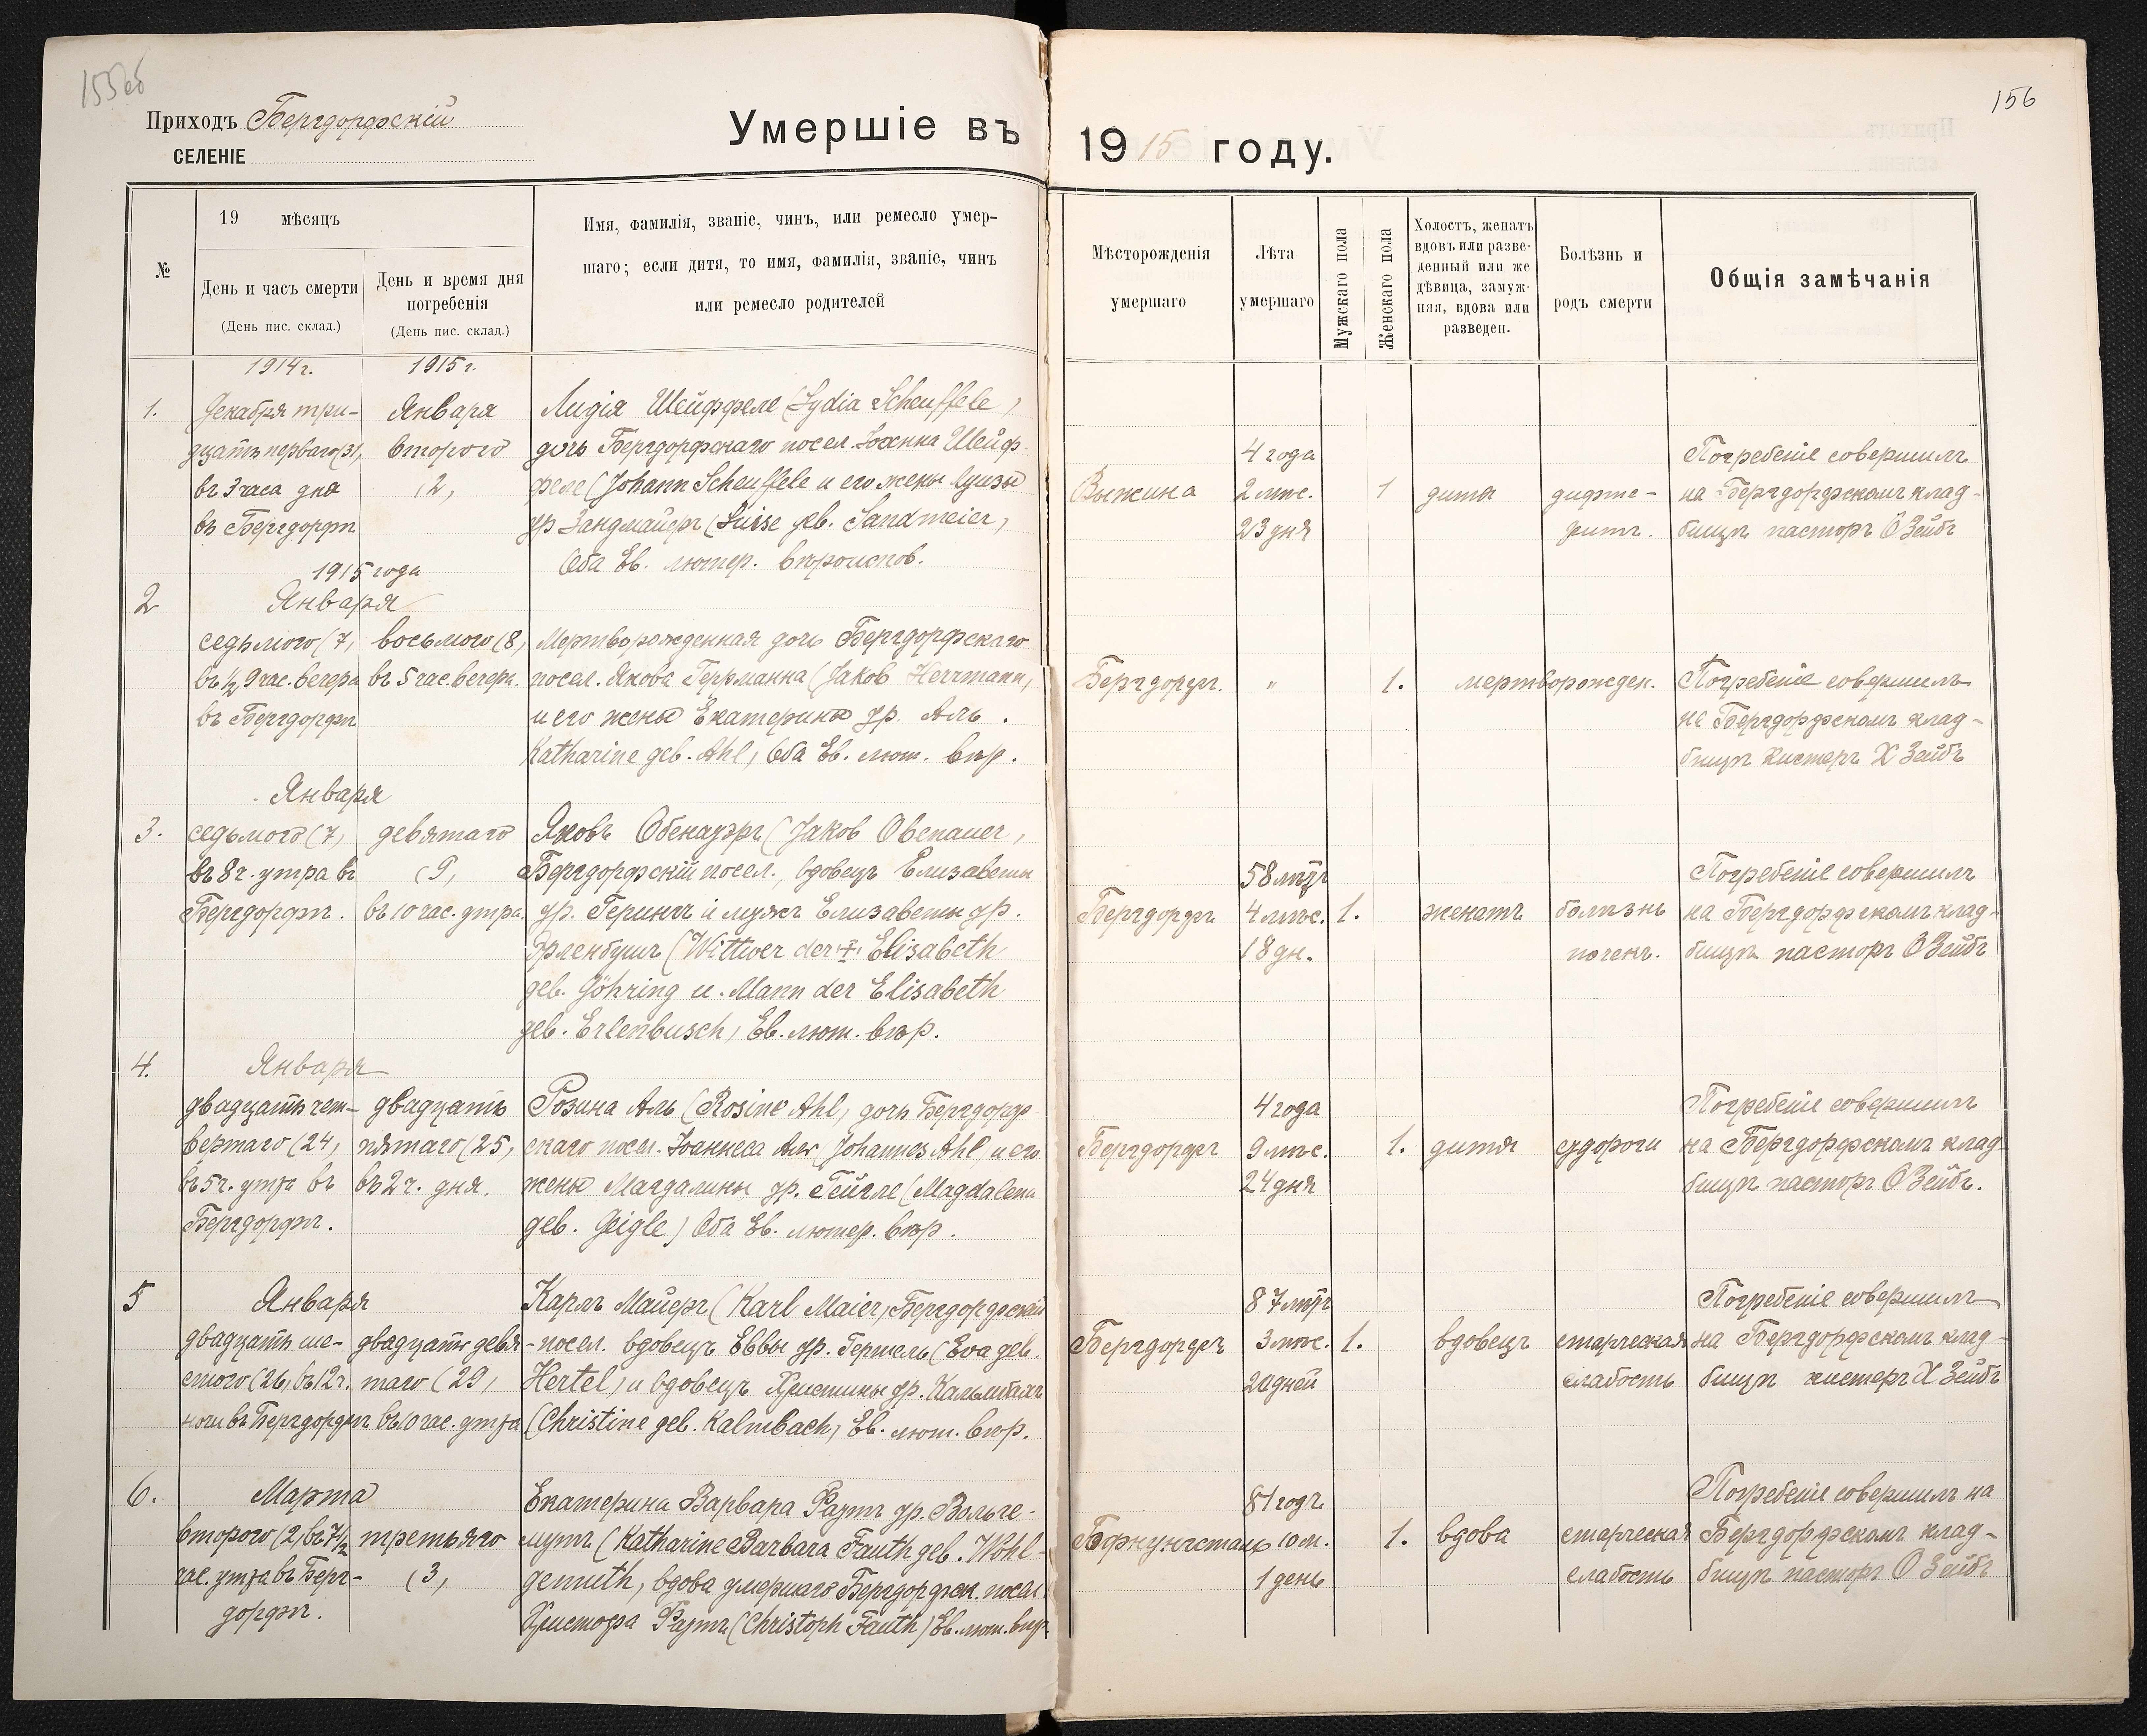 155об
156
Приходъ Бергдорфскій
СЕЛЕНІЕ
Умершіе въ 1915 году.
№
19 мѣсяцъ
День и часъ смерти
(День пис. склад.)
День и время дня
погребенія
(День пис. склад.)
Имя, фамилія, званіе, чинъ, или ремесло умер-
шаго; если дитя, то имя, фамилія, званіе, чинъ
или ремесло родителей
Мѣсторожденія
умершаго
Лѣта
умершаго
Мужскаго пола
Женскаго пола
Холостъ, женатъ
вдовъ или разве-
денный или же
дѣвица, замуж-
няя, вдова или
разведен.
Болѣзнь и
родъ смерти
Общія замѣчанія
1.
1914 г.
Декабря три-
дцать перваго (31)
въ 3 часа дня
въ Бергдорфѣ
1915 г.
Января
второго
(2,
Лидія Шейффеле (Lydia Scheuffele,
дочь Бергдорфскаго посел. Іоханна Шейф-
феле (Johann Scheuffele и его жены Луизы
ур. Зандмайеръ (Luise geb. Sandmeier,
Оба Ев. лютер. вѣроиспов.
4 года
2 мѣс.
23 дня
1
дитя
дифте-
ритъ.
Погребеніе совершилъ
на Бергдорфскомъ клад-
бищѣ пасторъ О Зейбъ
2
1915 года
Января
седьмого (7,
въ ½ 9 час. вечера
въ Бергдорфѣ
восьмого (8,
въ 5 час. вечера.
Мертворожденная дочь Бергдорфскаго
посел. Якова Геррманна (Jakob Herrmann,
и его жены Екатерины ур. Аль.
Katharine geb. Ahl, Оба Ев. лют. вѣр.
Бергдорфъ.
"
1.
мертворожден.
Погребеніе совершилъ
на Бергдорфскомъ клад-
бищѣ кистеръ Х Зейбъ
3.
Января
седьмого (7,
въ 8 ч. утра въ
Бергдорфѣ.
девятаго
(9,
въ 10 час. утра.
Яковъ Обенауэръ (Jakob Obenauer,
Бергдорфскій посел., вдовецъ Елизаветы
ур. Герингъ и мужъ Елизаветы ур.
Эрленбушъ (Wittwer der † Elisabeth
geb. Göhring u. Mann der Elisabeth
geb. Erlenbusch, Ев. лют. вѣр.
Бергдорфъ
58 лѣтъ
4 мѣс.
18 дн.
1.
женатъ
болѣзнь
печени.
Погребеніе совершилъ
на Бергдорфскомъ клад-
бищѣ пасторъ О Зейбъ
4.
Января
двадцать чет-
вертаго (24,
въ 5 ч. утра въ
Бергдорфѣ.
двадцать
пятаго (25,
въ 2 ч. дня.
Розина Аль (Rosine Ahl, дочь Бергдорф-
скаго посел. Іоаннеса Аль Johannes Ahl и его
жены Магдалины ур. Гейгле (Magdalena
geb. Geigle) Оба Ев. лютер. вѣр.
Бергдорфъ
4 года
9 мѣс.
24 дня
1.
дитя
судороги
Погребеніе совершилъ
на Бергдорфскомъ клад-
бищѣ пасторъ О Зейбъ.
5
Января
двадцать ше-
стого (26, въ 12 ч.
ночи въ Бергдорфѣ
двадцать девя-
таго (29,
въ 10 час. утра
Карлъ Майеръ (Karl Maier, Бергдорфскій
посел. вдовецъ Еввы ур. Гертель (Eva geb.
Hertel, и вдовецъ Христины ур. Кальмбахъ
(Christine geb. Kalmbach, Ев. лют. вѣр.
Бергдорфъ
87 лѣтъ
3 мѣс.
20 дней
1.
вдовецъ
старческая
слабость
Погребеніе совершилъ
на Бергдорфскомъ клад-
бищѣ кистеръ Х Зейбъ
6.
Марта
второго (2, въ 7½
час. утра въ Берг-
дорфѣ.
третьяго
(3,
Екатерина Варвара Фаутъ ур. Вольге-
мутъ (Katharine Barbara Fauth geb. Wohl-
gemuth, вдова умершаго Бергдорфск. посел.
Христофа Фаутъ (Christoph Fauth) Ев. лют. вѣр.
81 годъ
10 м.
1 день
1.
вдова
старческая
слабость
Погребеніе совершилъ на
Бергдорфскомъ клад-
бищѣ пасторъ О Зейбъ